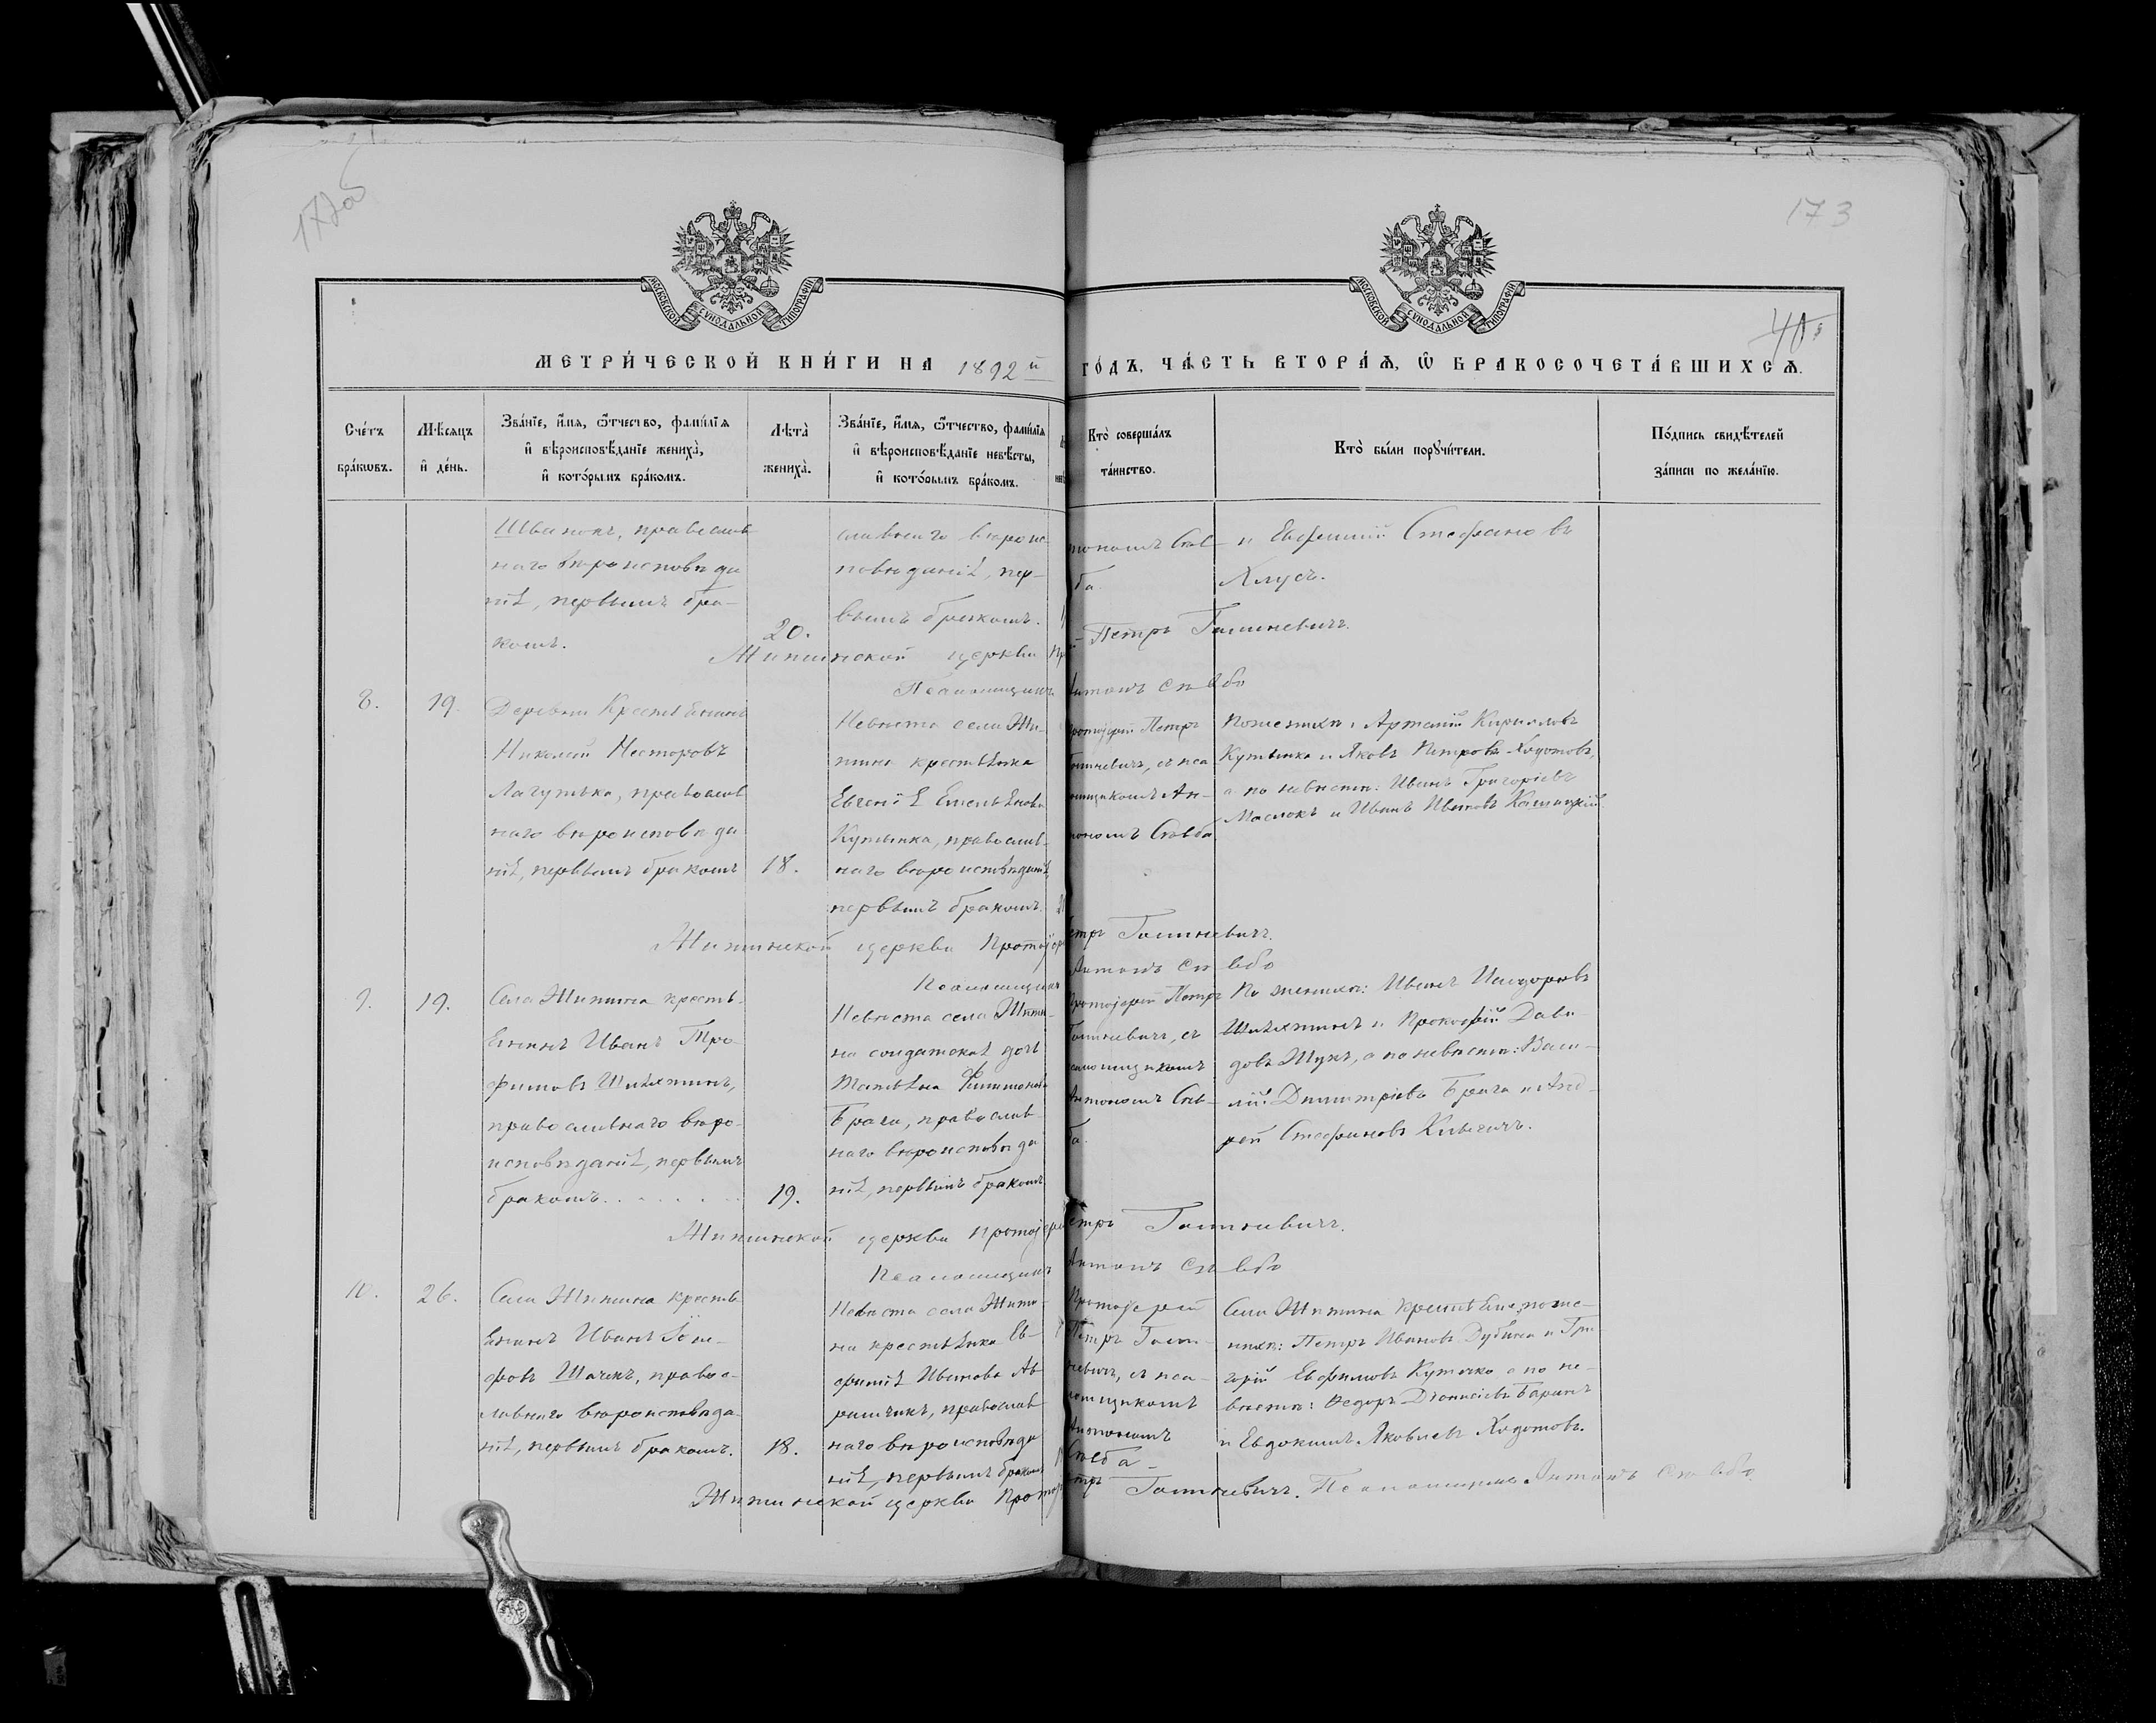 172об
173
МОСКОВСКОЙ СѴНОДАЛЬНОЙ ТИПОГРАФІИ
МОСКОВСКОЙ СѴНОДАЛЬНОЙ ТИПОГРАФІИ
40
МЕТРИ́ЧЕСКОЙ КНИ́ГИ НА 1892й ГО́ДЪ, ЧА́СТЬ ВТОРА́Ѧ, Ѡ҆ БРАКОСОЧЕТА́ВШИХСѦ.
Сче́тъ
бра́кѡвъ.
Мѣ́сѧцъ
и҆ де́нь.
Зва́нїе, и҆́мѧ, ѻ҆́тчество, фами́лїѧ
и҆ вѣроисповѣ́данїе жениха̀,
и҆ кото́рымъ бра́комъ.
Лѣта̀
жениха̀.
Зва́нїе, и҆́мѧ, ѻ҆́тчество, фами́лїѧ
и҆ вѣроисповѣ́данїе невѣ́сты,
и҆ кото́рымъ бра́комъ.
Кто̀ соверша́лъ
та́инство.
Кто̀ бы́ли порꙋчи́тели.
По́дпись свидѣ́телей
за́писи по жела́нїю.
православ
наго вѣроисповѣда
нія, первымъ бра-
комъ.
20.
славнаго вѣроис
повѣданія, пер-
вымъ бракомъ.
и Евфимій Стефановъ
Хлусъ.
Житинской церкви Петръ Гоминевичъ.
Псаломщикъ Антонъ
8.
19.
Деревни Крестьянинъ
Николай Несторовъ
православ
наго вѣроисповѣда
нія, первымъ бракомъ
18.
Невѣста села Жи-
тина крестьянка
Евгенія Емельянова
Кутынка, православ-
наго вѣроисповѣданія,
первымъ бракомъ.
Протоіерей Петръ
Антономъ
По женихѣ: Артемій Кирилловъ
Кутынка и Яковъ Петровъ Ходотовъ,
а по невѣстѣ: Иванъ Григоріевъ
Маслокъ и Иванъ Ивановъ
Житинской церкви Протоіерей Петръ Гоминевичъ.
Псаломщикъ Антонъ
9.
19.
Села Житина кресть-
янинъ Иванъ Тро-
фимовъ
православнаго вѣро-
исповѣданія, первымъ
бракомъ.
19.
Невѣста села Жити-
на солдатская дочь
Татьяна Филимонова
Брага, православ-
наго вѣроисповѣда
нія, первымъ бракомъ
Протоіерей Петръ
Гоминевичъ, съ
псаломщикомъ
Антономъ
По женихѣ: Иванъ Исидоровъ
и Прокофій Дави-
довъ Жукъ, а по невѣстѣ: Васи-
лій Димитріевъ Брага и Анд-
рей Стефановъ
Житинской церкви Протоіерей Петръ Гоминевичъ.
Псаломщикъ Антонъ
10.
26.
Села Житина кресть
янинъ Иванъ Іоси-
фовъ правос-
лавнаго вѣроисповѣда
нія, первымъ бракомъ.
18.
Невѣста села Жити-
на крестьянка Ев-
фимія Иванова Ав
рамчикъ, православ
наго вѣроисповѣда
нія, первымъ бракомъ
Протоіерей
Петръ Гоми-
невичъ, съ пса-
ломщикомъ
Антономъ
Села Житина крестьяне, по же-
нихѣ: Петръ Ивановъ Дубина и Гри
горій Евфимовъ а по не-
вѣстѣ: Ѳедоръ Діонисіевъ Баранъ
и Евдокимъ Яковлевъ Ходотовъ.
Житинской церкви Протоіерей Петръ Гоминевичъ. Псаломщикъ Антонъ